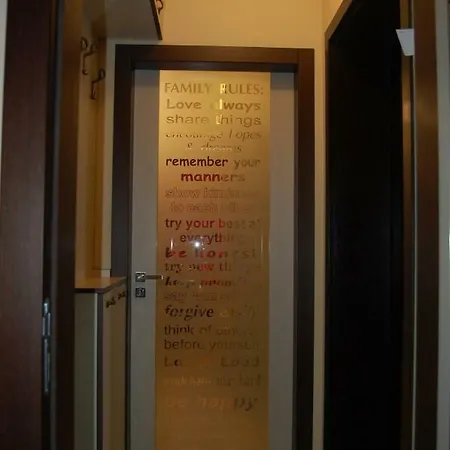 FAMILY RULES:
Love always
share things
encourage hopes
& dreams
remember your
manners
show kindness
to each
try your best at
everything
be honest
try new things
keep
forgive
think of
before yourself
Loud
be happy